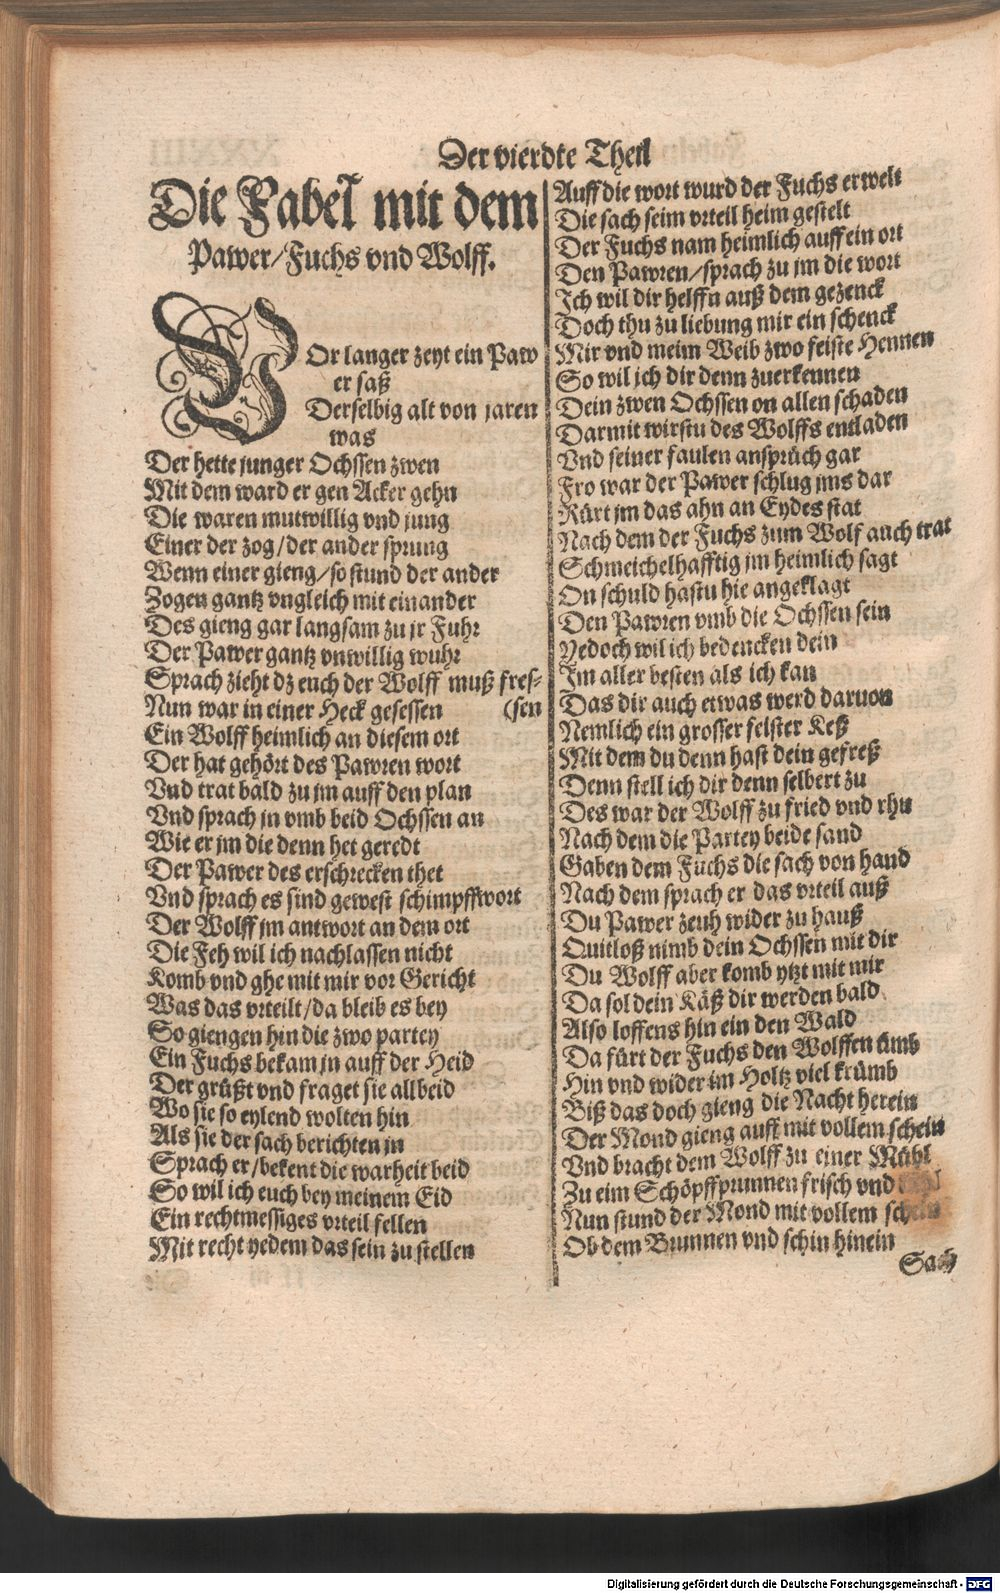 Der vierdte Theil
Die Fabel mit dem
Pawer/Fuchs vnd Wolff.
VOr langer zeyt ein Paw
er saß
Derselbig alt von jaren
was
Der hette junger Ochssen zwen
Mit dem ward er gen Acker gehn
Die waren mutwillig vnd jung
Einer der zog/der ander sprung
Wenn einer gieng/so stund der ander
Zogen gantz vngleich mit einander
Des gieng gar langsam zu jr Fuhr
Der Pawer gantz vnwillig wuhr
Sprach zieht dz euch der Wolff muß fres-
Nun war in einer Heck gesessen (sen
Ein Wolff heimlich an diesem ort
Der hat gehört des Pawren wort
Vnd trat bald zu jm auff den plan
Vnd sprach jn vmb beid Ochssen an
Wie er jm die denn het geredt
Der Pawer des erschrecken thet
Vnd sprach es sind gewest schimpffwort
Der Wolff jm antwort an dem ort
Die Feh wil ich nachlassen nicht
Komb vnd ghe mit mir vor Gericht
Was das vrteilt/da bleib es bey
So giengen hin die zwo partey
Ein Fuchs bekam jn auff der Heid
Der grüßt vnd fraget sie allbeid
Wo sie so eylend wolten hin
Als sie der sach berichten jn
Sprach er/bekent die warheit beid
So wil ich euch bey meinem Eid
Ein rechtmessiges vrteil fellen
Mit recht yedem das sein zu stellen
Auff die wort wurd der Fuchs erwelt
Die sach seim vrteil heim gestelt
Der Fuchs nam heimlich auff ein ort
Den Pawren/sprach zu jm die wort
Ich wil dir helffn auß dem gezenck
Doch thu zu liebung mir ein schenck
Mir vnd meim Weib zwo feiste Hennen
So wil ich dir denn zuerkennen
Dein zwen Ochssen on allen schaden
Darmit wirstu des Wolffs entladen
Vnd seiner faulen ansprüch gar
Fro war der Pawer schlug jms dar
Rürt jm das ahn an Eydes stat
Nach dem der Fuchs zum Wolf auch trat
Schmeichelhafftig jm heimlich sagt
On schuld hastu hie angeklagt
Den Pawren vmb die Ochssen sein
Yedoch wil ich bedencken dein
Im aller besten als ich kan
Das dir auch etwas werd daruon
Nemlich ein grosser feister Keß
Mit dem du denn hast dein gefreß
Denn stell ich dir denn selbert zu
Des war der Wolff zu fried vnd rhu
Nach dem die Partey beide sand
Gaben dem Fuchs die sach von hand
Nach dem sprach er das vrteil auß
Du Pawer zeuh wider zu hauß
Quitloß nimb dein Ochssen mit dir
Du Wolff aber komb ytzt mit mir
Da sol dein Käß dir werden bald
Also loffens hin ein den Wald
Da fürt der Fuchs den Wolffen ümb
Hin vnd wider im Holtz viel krümb
Biß das doch gieng die Nacht herein
Der Mond gieng auff mit vollem schein
Vnd bracht dem Wolff zu einer Mühl
Zu eim Schöpffprunnen frisch vnd
Nun stund der Mond mit vollem schein
Ob dem Brunnen vnd schin hinein
Sach
Digitalisierung gefördert durch die Deutsche Forschungsgemeinschaft - DFG